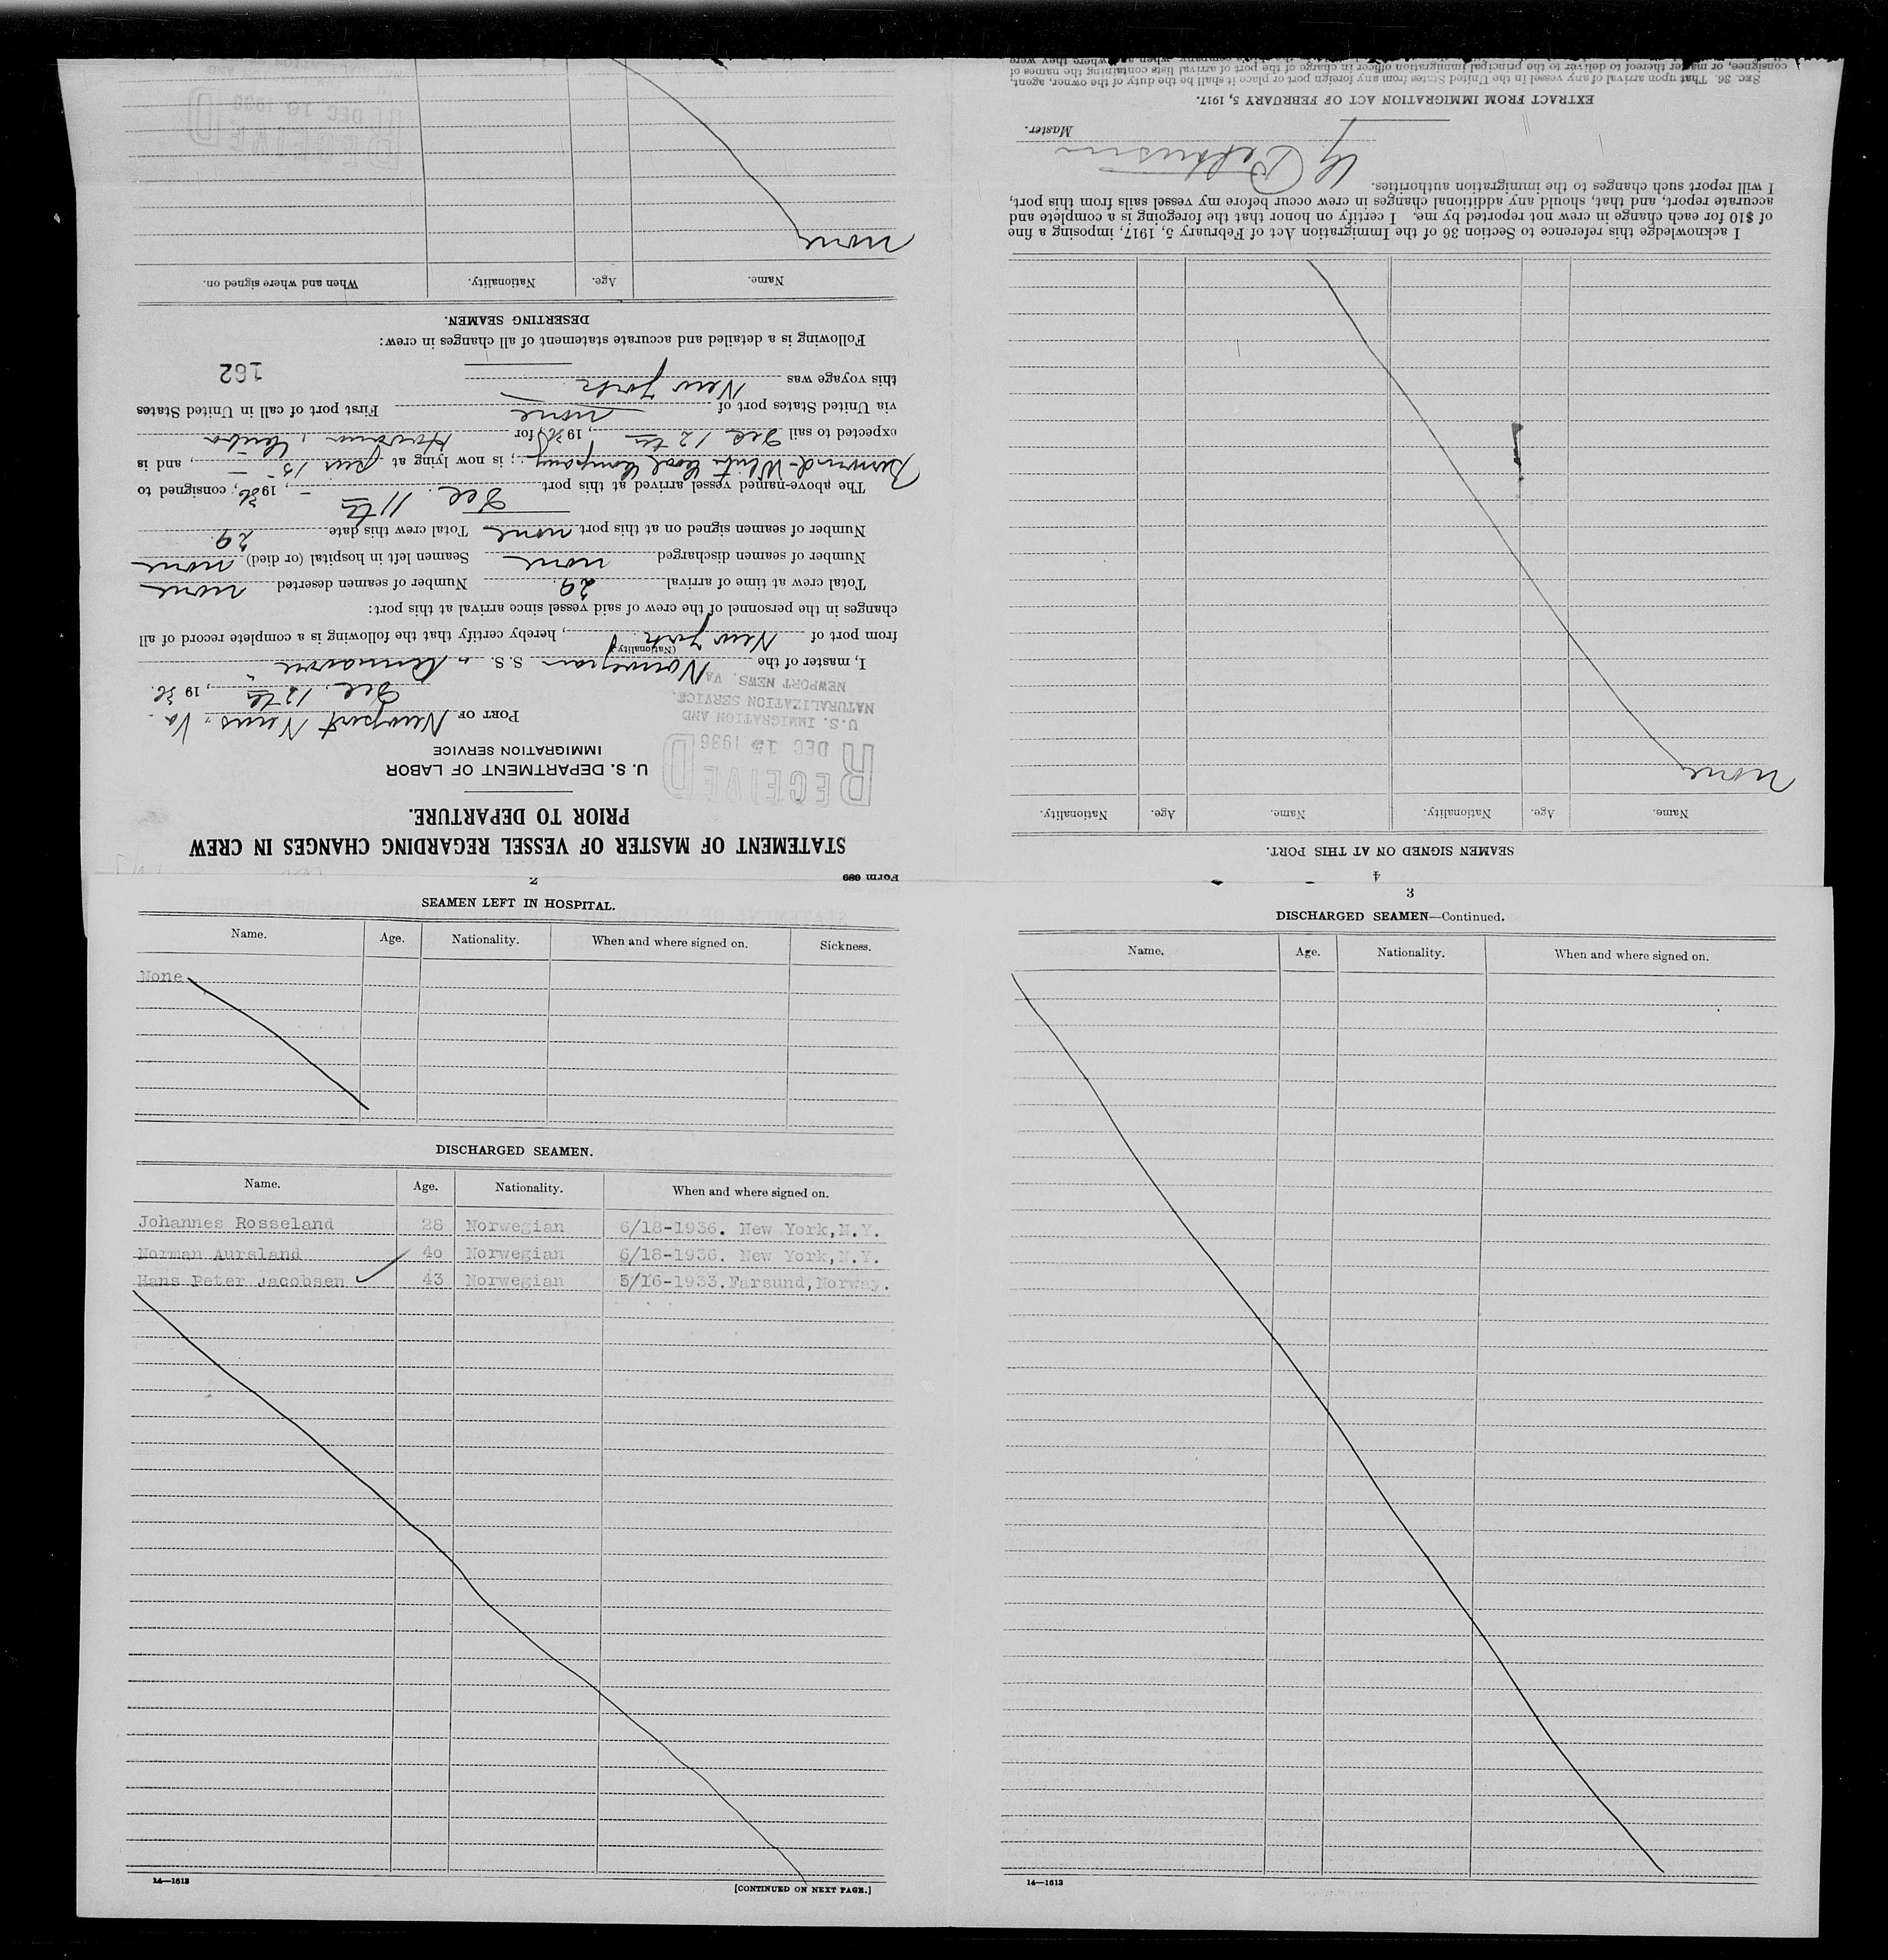 Form 689
STATEMENT OF MASTER OF VESSEL REGARDING CHANGES IN CREW
PRIOR TO DEPARTURE.
U. S. DEPARTMENT OF LABOR
IMMIGRATION SERVICE
RECEIVED
DEC 15 1936
U. S. IMMIGRATION AND
NATURALIZATION SERVICE,
NEWPORT NEWS, VA
PORT OF Newport News, Va.
Dec. 12th, 1936.
I, master of the Norwegian S. S.
(Nationality)
from port of New York, hereby certify that the following is a complete record of all
changes in the personnel of the crew of said vessel since arrival at this port:
Total crew at time of arrival 29. Number of seamen deserted none
Number of seamen discharged none Seamen left in hospital (or died) none
Number of seamen signed on at this port none Total crew this date 29.
The above-named vessel arrived at this port Dec. 11th, 1936, consigned to
Berwind-White Coal Company; is now lying at Pier 15, and is
expected to sail Dec 12th, 1936, for Havana, Cuba
via United States port of none First port of call in United States
this voyage was New York
162
Following is a detailed and accurate statement of all changes in crew:
DESERTING SEAMEN.
Name. Age. Nationality. When and where signed on.
none
RECEIVED
DEC 16 1936
4
SEAMEN SIGNED ON AT THIS PORT.
Name. Age. Nationality. Name. Age. Nationality.
none
I acknowledge this reference to Section 36 of the Immigration Act of February 5, 1917, imposing a fine
of $10 for each change in crew not reported by me. I certify on honor that the foregoing is a complete and
accurate report, and that, should any additional changes in crew occur before my vessel sails from this port,
I will report such changes to the immigration authorities.
Master.
EXTRACT FROM IMMIGRATION ACT OF FEBRUARY 5, 1917.
SEC. 36. That upon arrival of any vessel in the United States from any foreign port or place it shall be the duty of the owner, agent,
consignee, or master thereof to deliver to the principal immigration officer in charge of the port of arrival lists containing the names of
2
SEAMEN LEFT IN HOSPITAL.
Name. Age. Nationality. When and where signed on. Sickness.
None
DISCHARGED SEAMEN.
Name. Age. Nationality. When and where signed on.
Johannes Rosseland 28 Norwegian 6/18-1936. New York,N.Y.
Norman Aursland 40 Norwegian 6/18-1936. New York,N.Y.
Hans Peter Jacobsen 43 Norwegian 5/16-1933.Farsund,Norway.
14—1613
[CONTINUED ON NEXT PAGE.]
3
DISCHARGED SEAMEN—Continued.
Name. Age. Nationality. When and where signed on.
14—1613